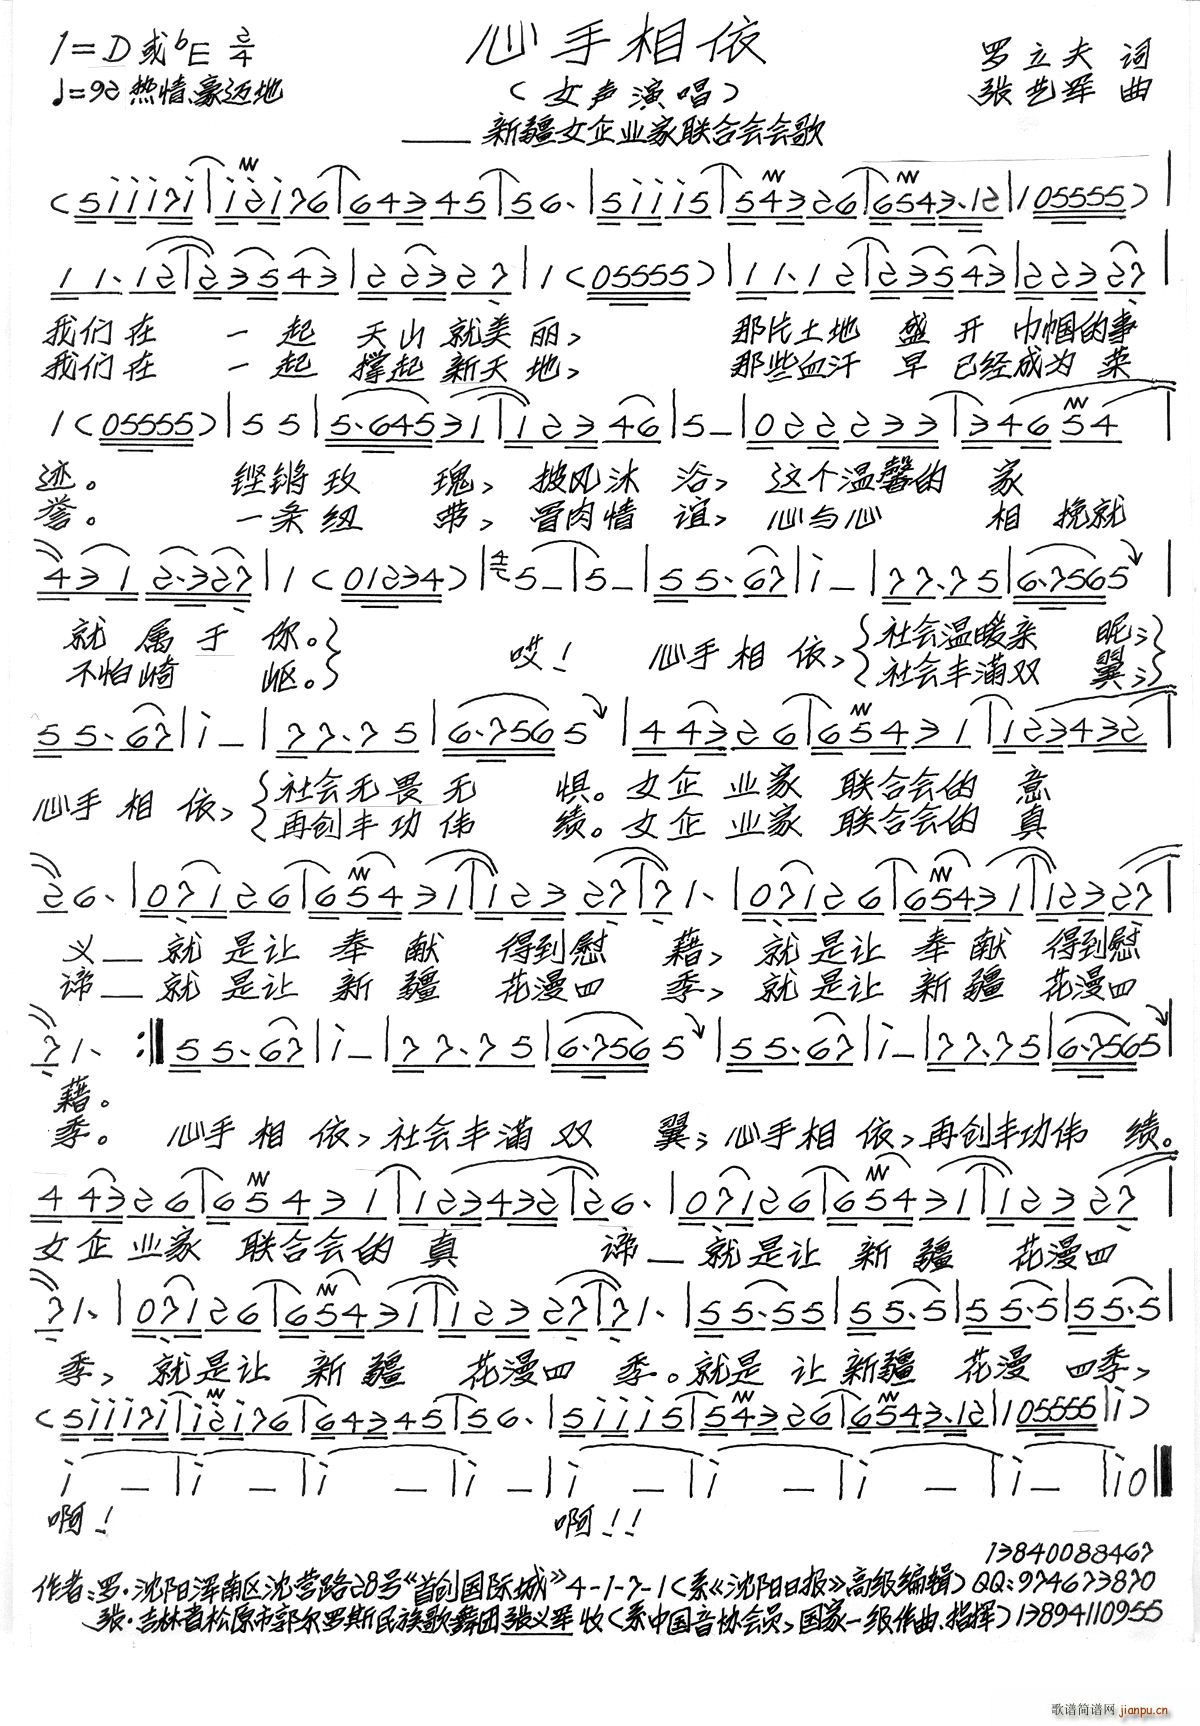 心手相依
1=D或bE 2/4
♩=92 热情、豪迈地
（女声演唱）
——新疆女企业家联合会会歌
罗立夫 词
张艺军 曲
(5iii7i|i2i76|64345|56.|5iii5|54326|6543.12|105555)|
11.12|23543|22327|1(05555)|11.12|23543|22327|
我们在 一起 天山就美丽， 那片土地 盛开 巾帼的事
我们在 一起 撑起新天地， 那些血汗 早已经成为荣
1(05555)|55|5.64531|12346|5-|0222233|34654|
迹。 铿锵玫 瑰，披风沐浴，这个温馨的 家
誉。 一条纽 带，冒肉情谊，心与心 相挽就
4312.327|1(01234)|4/4 5-|5-|55.67|i-|77.75|6.7565|
就属于你。} 哎！ 心手相依，{社会温暖亲 昵；}
不怕崎 岖。} {社会丰满双 翼；}
55.67|i-|77.75|6.7565|44326|65431|123432|
心手相依，{社会无畏无 惧。女企业家 联合会的 意
{再创丰功伟 绩。女企业家 联合会的 真
26.|07126|65431|12327|71.|07126|65431|12327|
义——就是让 奉献 得到慰 藉，就是让 奉献 得到慰
谛——就是让 新疆 花漫四 季，就是让 新疆 花漫四
71. :‖55.67|i-|77.75|6.7565|55.67|i-|77.75|6.7565|
藉。
季。 心手相依，社会丰满双 翼；心手相依，再创丰功伟 绩。
44326|65431|123432|26.|07126|65431|12327|
女企业家 联合会的 真 谛——就是让 新疆 花漫四
71.|07126|65431|12327|71.|55.55|55.5|55.5|55.5|
季，就是让 新疆 花漫四 季。就是 让新疆 花漫 四季，
(5iii7i|i2i76|64345|56.|5iii5|54326|6543.12|105555|i)
i-|i-|i-|i-|i-|i-|i-|i-|i0‖
啊！ 啊！！
13840088467
作者：罗·沈阳浑南区沈营路28号《首创国际城》4-1-7-1（系《沈阳日报》高级编辑）QQ：974673870
张·吉林省松原市郭尔罗斯民族歌舞团张义军收（系中国音协会员、国家一级作曲、指挥）13894110955
歌谱简谱网
jianpu.cn